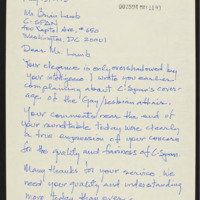 002098 MAY 11 93
Mr Brian Lamb
C-SPAN
400 Capitol Ave, #650
Washington, DC 20001
Dear Mr Lamb
Your elegance is only overshadowed by
your intelligence. I wrote you earlier
complaining about C-Span's cover-
age of the Gay/Lesbian affair.
Your comments near the end of
your roundtable today were clearly
a true expression of your concern
for the quality and fairness of C-Span.
Many thanks for your service. We
need your quality and understanding
more today than ever